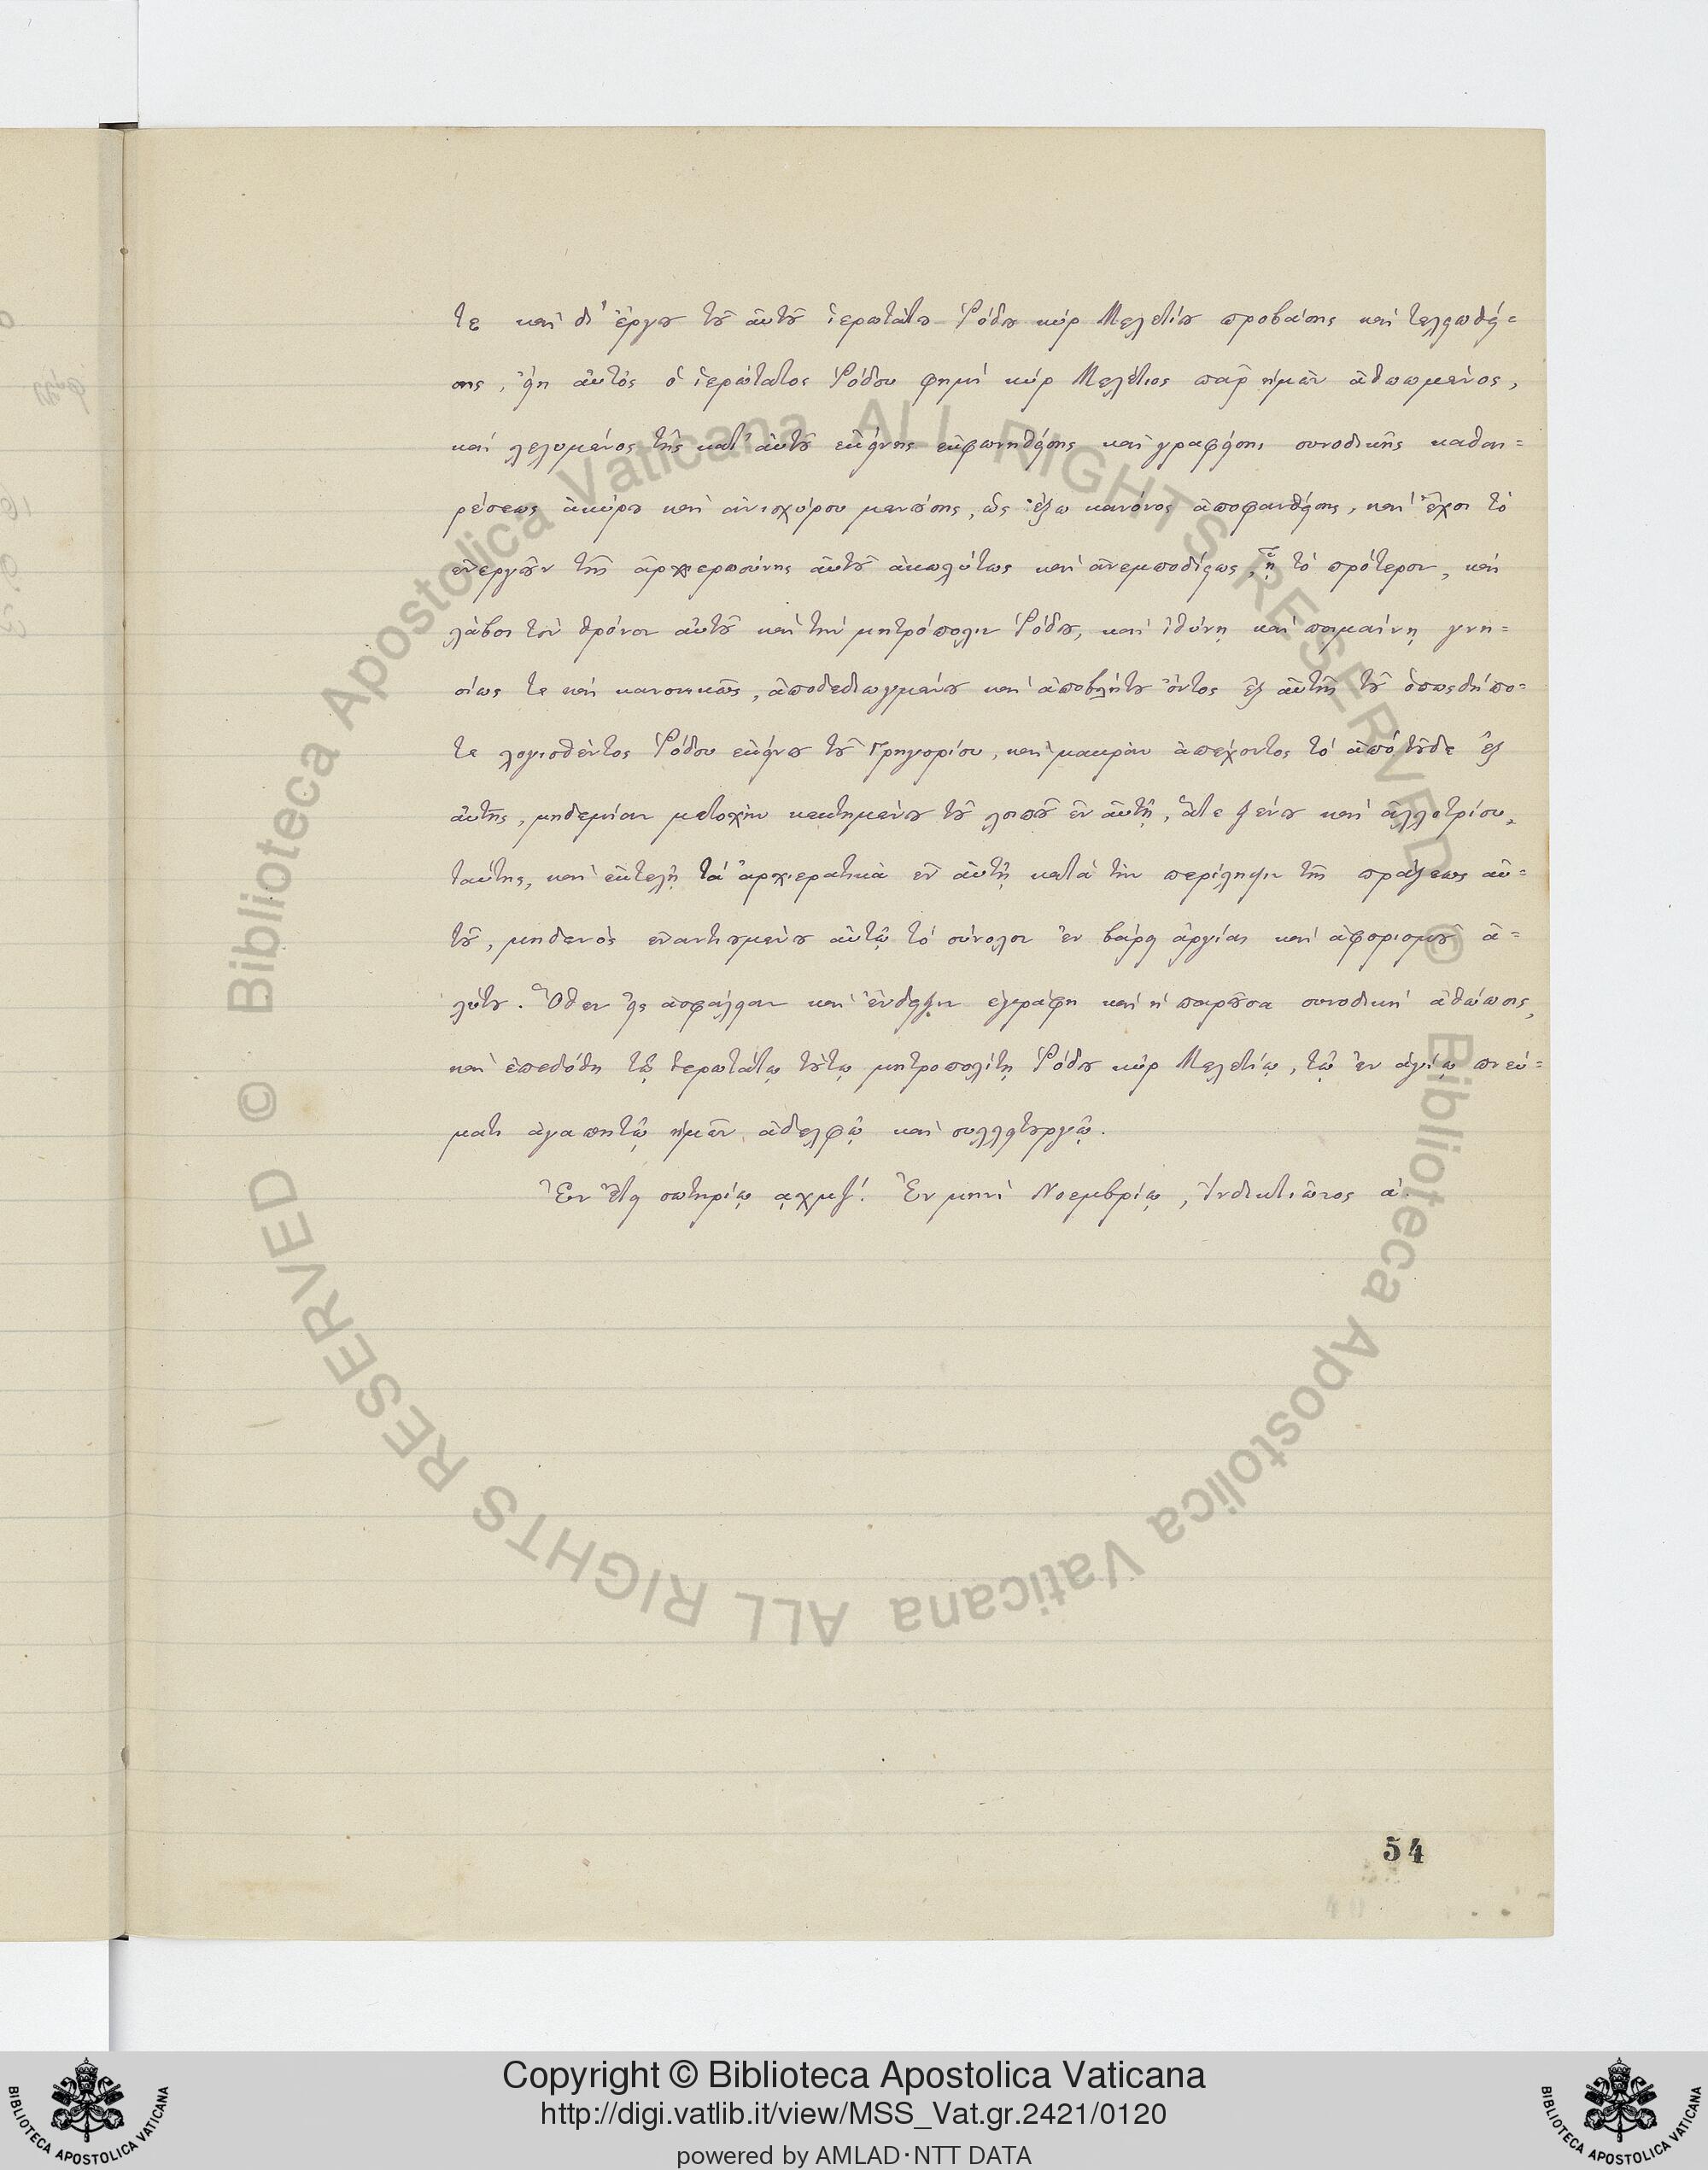 τε καὶ δι' ἔργου τοῦ αὐτοῦ ἱερωτάτου Ῥόδου κὺρ Μελετίου προβάσης καὶ τελειωθεί=
σης, εἴη αὐτὸς ὁ ἱερώτατος Ῥόδου φημὶ κὺρ Μελέτιος παρ' ἡμῶν ἀθωωμένος,
καὶ λελυμένος τῆς κατ' αὐτοῦ ἐκείνης ἐκφωνηθείσης καὶ γραφείσης συνοδικῆς καθαι=
ρέσεως ἀκύρου καὶ ἀνισχύρου μενούσης, ὡς ἔξω κανόνος ἀποφανθείσης, καὶ ἔχοι τὸ
ἐνεργεῖν τῆς ἀρχιερωσύνης αὐτοῦ ἀκωλύτως καὶ ἀνεμποδίστως, ᾗ τὸ πρότερον, καὶ
λάβοι τὸν θρόνον αὐτοῦ καὶ τὴν μητρόπολιν Ῥόδου, καὶ ἰθύνῃ καὶ ποιμαίνῃ γνη=
σίως τε καὶ κανονικῶς, ἀποδεδιωγμένου καὶ ἀποβλήτου ὄντος ἐξ αὐτῆς τοῦ ὁπωςδήπο=
τε λογισθέντος Ῥόδου ἐκείνου τοῦ Γρηγορίου, καὶ μακρὰν ἀπέχοντος τὸ ἀπὸ τοῦδε ἐξ
αὐτῆς, μηδεμίαν μετοχὴν κεκτημένου τοῦ λοιποῦ ἐν αὐτῇ, ἅτε ξένου καὶ ἀλλοτρίου
ταύτης, καὶ ἐκτελῇ τὰ ἀρχιερατικὰ ἐν αὐτῇ κατὰ τὴν περίληψιν τῆς πράξεως αὐ=
τοῦ, μηδενὸς ἐναντιουμένου αὐτῷ τὸ σύνολον ἐν βάρει ἀργίας καὶ ἀφορισμοῦ ἀ=
λύτου. Ὅθεν εἰς ἀσφάλειαν καὶ ἔνδειξιν ἐγράφη καὶ ἡ παροῦσα συνοδικὴ ἀθώωσις,
καὶ ἐπεδόθη τῷ ἱερωτάτῳ τούτῳ μητροπολίτῃ Ῥόδου κὺρ Μελετίῳ, τῷ ἐν ἁγίῳ πνεύ=
ματι ἀγαπητῷ ἡμῶν ἀδελφῷ καὶ συλλειτουργῷ.
Ἐν ἔτει σωτηρίῳ ͵αχμζ΄. Ἐν μηνὶ Νοεμβρίῳ, Ἰνδικτιῶνος α΄.
54
Copyright © Biblioteca Apostolica Vaticana
http://digi.vatlib.it/view/MSS_Vat.gr.2421/0120
powered by AMLAD·NTT DATA
BIBLIOTECA APOSTOLICA VATICANA
BIBLIOTECA APOSTOLICA VATICANA
© Biblioteca Apostolica Vaticana ALL RIGHTS RESERVED
© Biblioteca Apostolica Vaticana ALL RIGHTS RESERVED